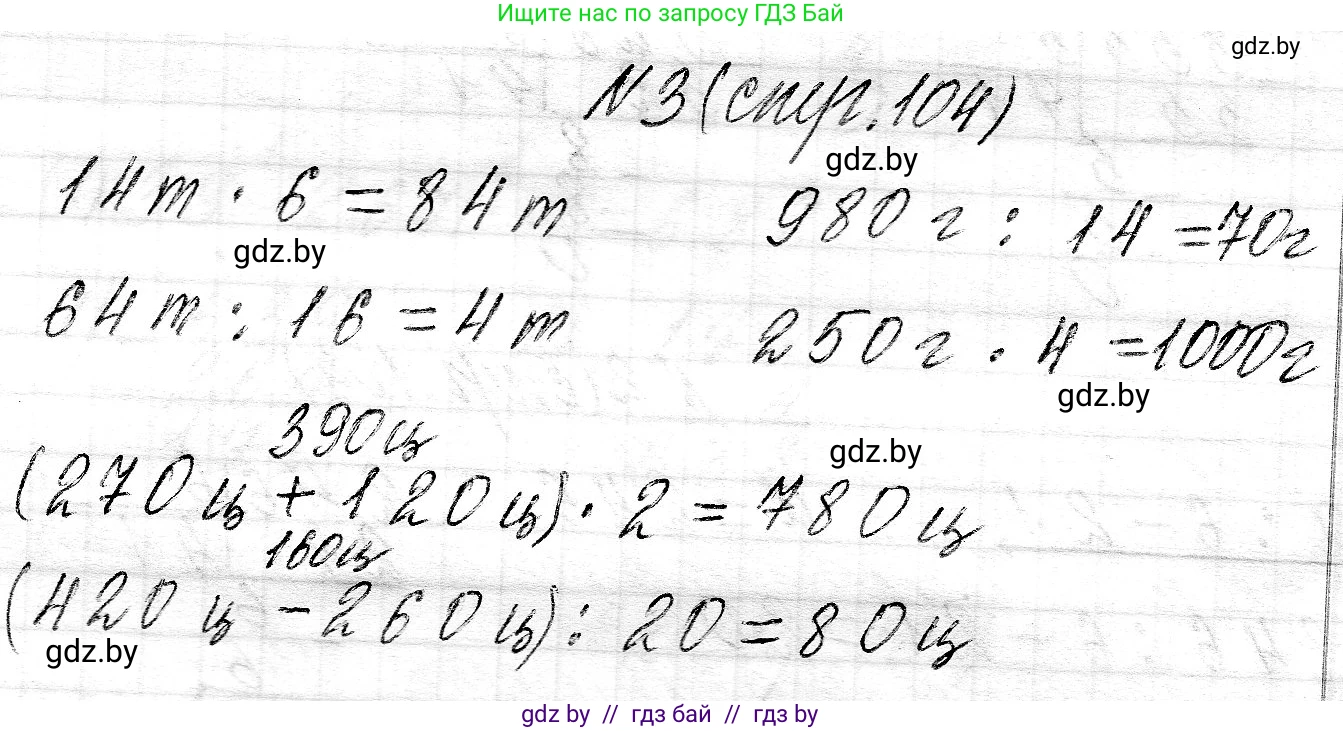 Ищите нас по запросу ГДЗ Бай
gdz.by
N3 (стр. 104)
gdz.by
14 т · 6 = 84 т 980 г : 14 = 70 г
gdz.by
64 т : 16 = 4 т 250 г · 4 = 1000 г
gdz.by
390 ц
gdz.by
(270 ц + 120 ц) · 2 = 780 ц
160 ц
(420 ц - 260 ц) : 20 = 80 ц
gdz.by
gdz by // гдз бай // гдз by